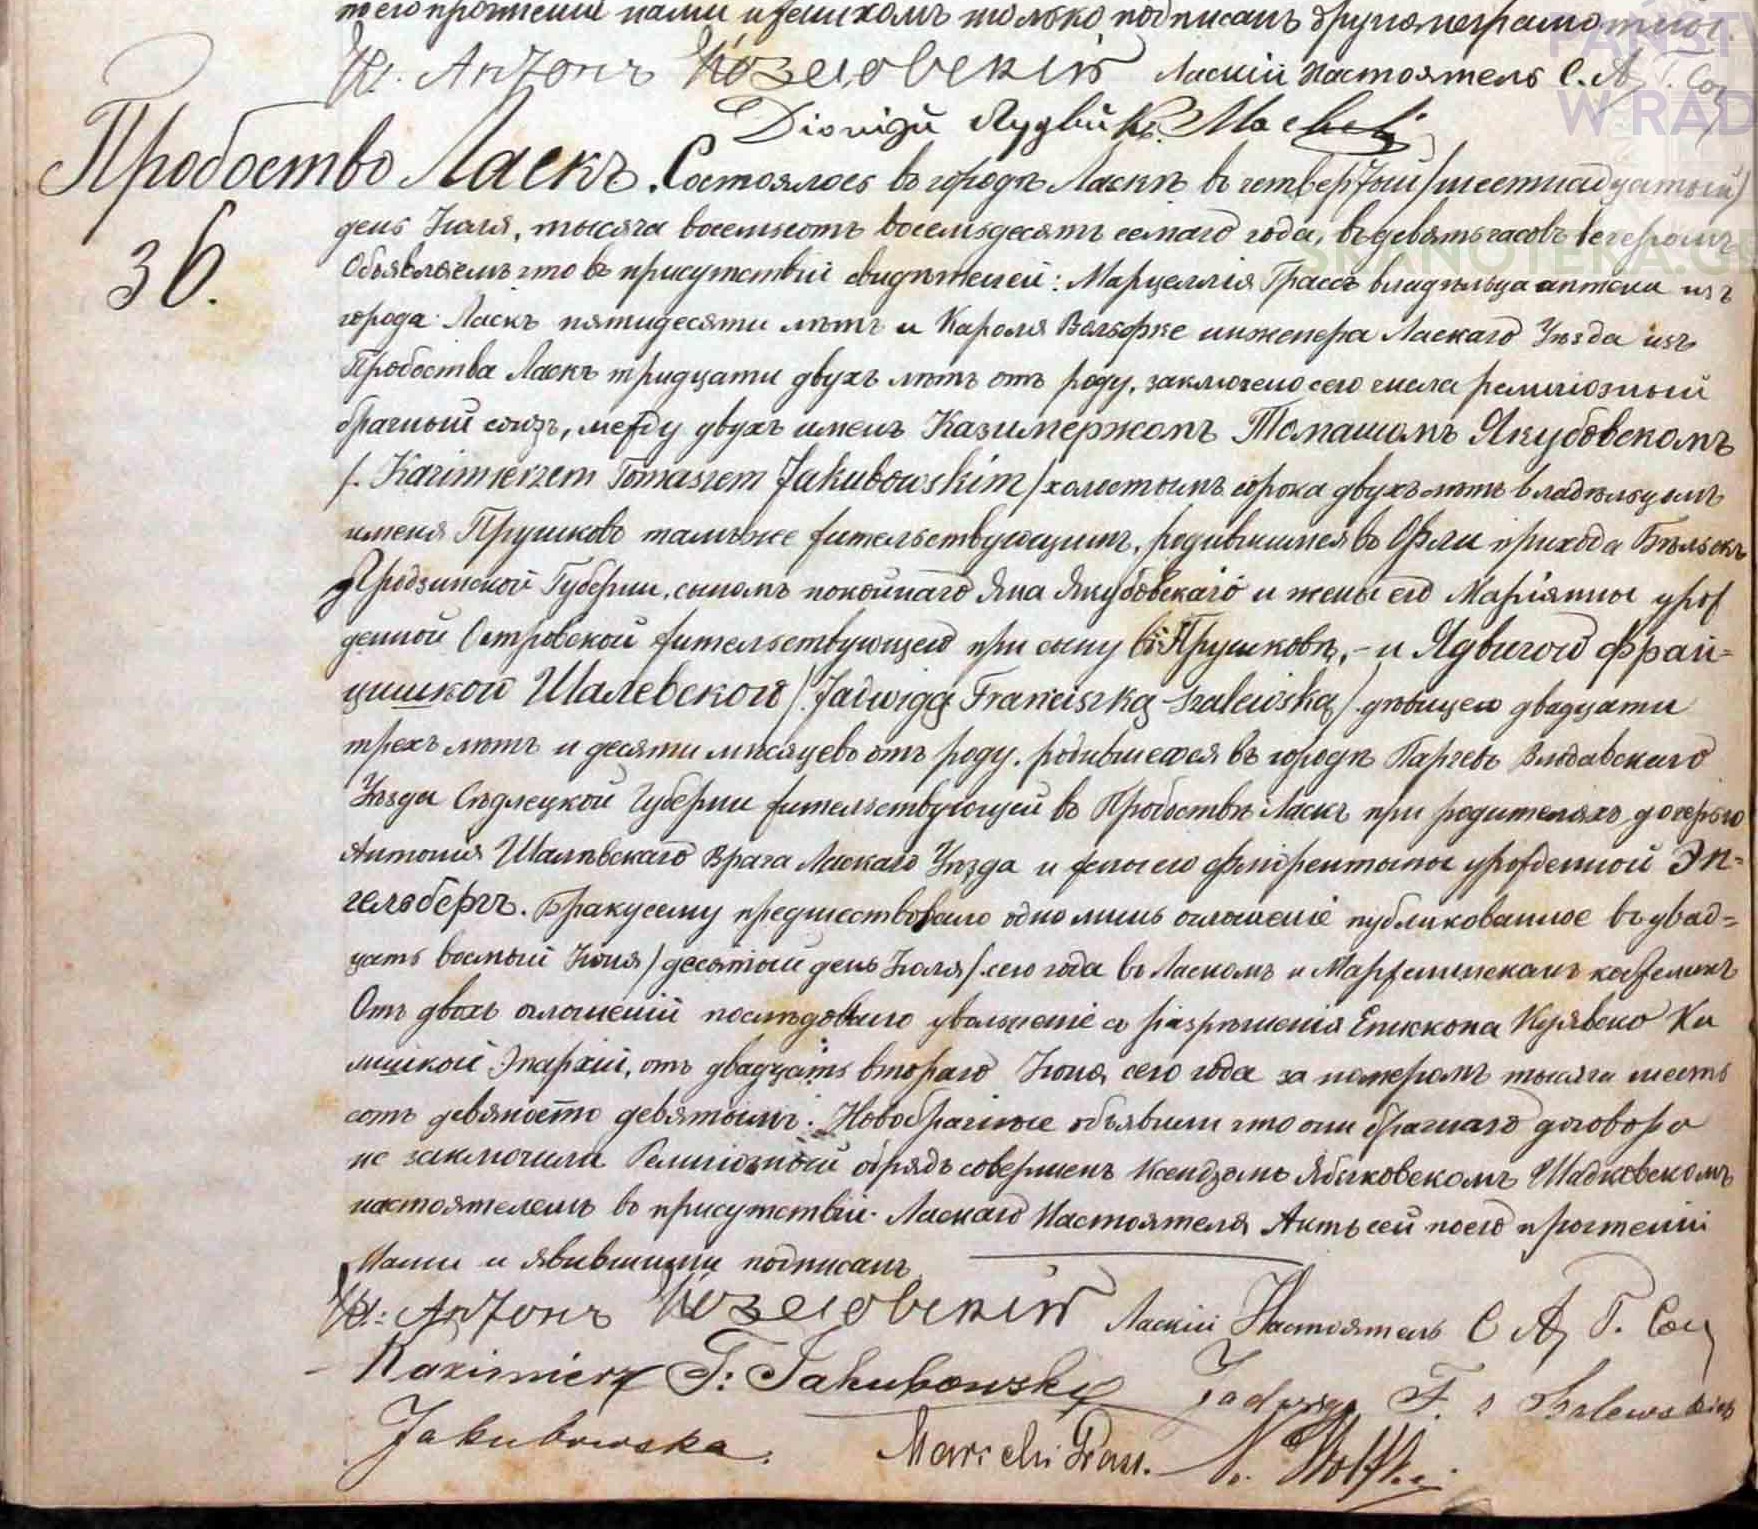 его прочтении нами и женихомъ только подписанъ другіе неграмотны.
Кс. Антонъ Козловскій Ласкій Настоятель С. А. Г. Соц
Dionizy Лудвик Мас
Пробоство Ласкъ. Состоялось въ городѣ Ласкѣ въ четвертый /шестнадцатый/
36.
день Іюля, тысяча восемьсотъ восемьдесятъ седьмаго года, въ девять часовъ вечеромъ
Объявляемъ что въ присутствіи свидѣтелей: Марцеллія Грассъ владѣльца аптеки изъ
города Ласкъ пятидесяти лѣтъ и Кароля Вольфке инженера Ласкаго Уѣзда изъ
Пробоства Ласкъ тридцати двухъ лѣтъ отъ роду, заключено сего числа религіозный
брачный союзъ, между двухъ именъ Казимержомъ Томашомъ Якубовскомъ
/. Kazimierzem Tomaszem Jakubowskim / холостымъ сорока двухъ лѣтъ владѣльцемъ
именя Прушково тамъже жительствующимъ, родившимся въ Орли прихода Бѣльскъ
Гродзинской Губерніи, сыномъ покойнаго Яна Якубовскаго и жены его Маріянны урож
денной Островской жительствующею при сыну въ Прушковѣ, - и Ядвигой Фран=
цишкой Шалевской /. Jadwigą Franciszką Szalewską /. дѣвицею двадцати
трехъ лѣтъ и десяти мѣсяцевъ отъ роду, родившеюся въ городѣ Парчевъ Влодавскаго
Уѣзда Сѣдлецкой Губерніи жительствующей въ Пробоствѣ Ласкъ при родителяхъ дочерью
Антонія Шалѣвскаго Врача Ласкаго Уѣзда и жены его Флорентыны урожденной Эн=
гельбергъ. Браку сему предшествовало одно лишь оглашеніе публикованное въ двад=
цать восмый Іюня / десятый день Іюля /. сего года въ Ласкомъ и Маржениskомъ костелахъ
Отъ двохъ оглашеній послѣдовало увольненіе съ разрѣшенія Епископа Куявско Ка
лишкой Эпархіи, отъ двадцать втораго Іюня сего года за номеромъ тысяча шесть
сотъ девяносто девятымъ. Новобрачные объявили что они брачнаго договора
не заключили Религіозный обрядъ совершенъ Ксендзомъ Шадковскомъ
настоятелемъ въ присутствіи Ласкаго Настоятеля Актъ сей по его прочтеніи
Нами и явившими подписанъ
Кс. Антонъ Козловскій Ласкій Настоятель С А. Г. Соц
Kazimierz T: Jakubowski Jadwiga F. Szalewska
Jakubowska. Marceli Grass. K. Wolfke